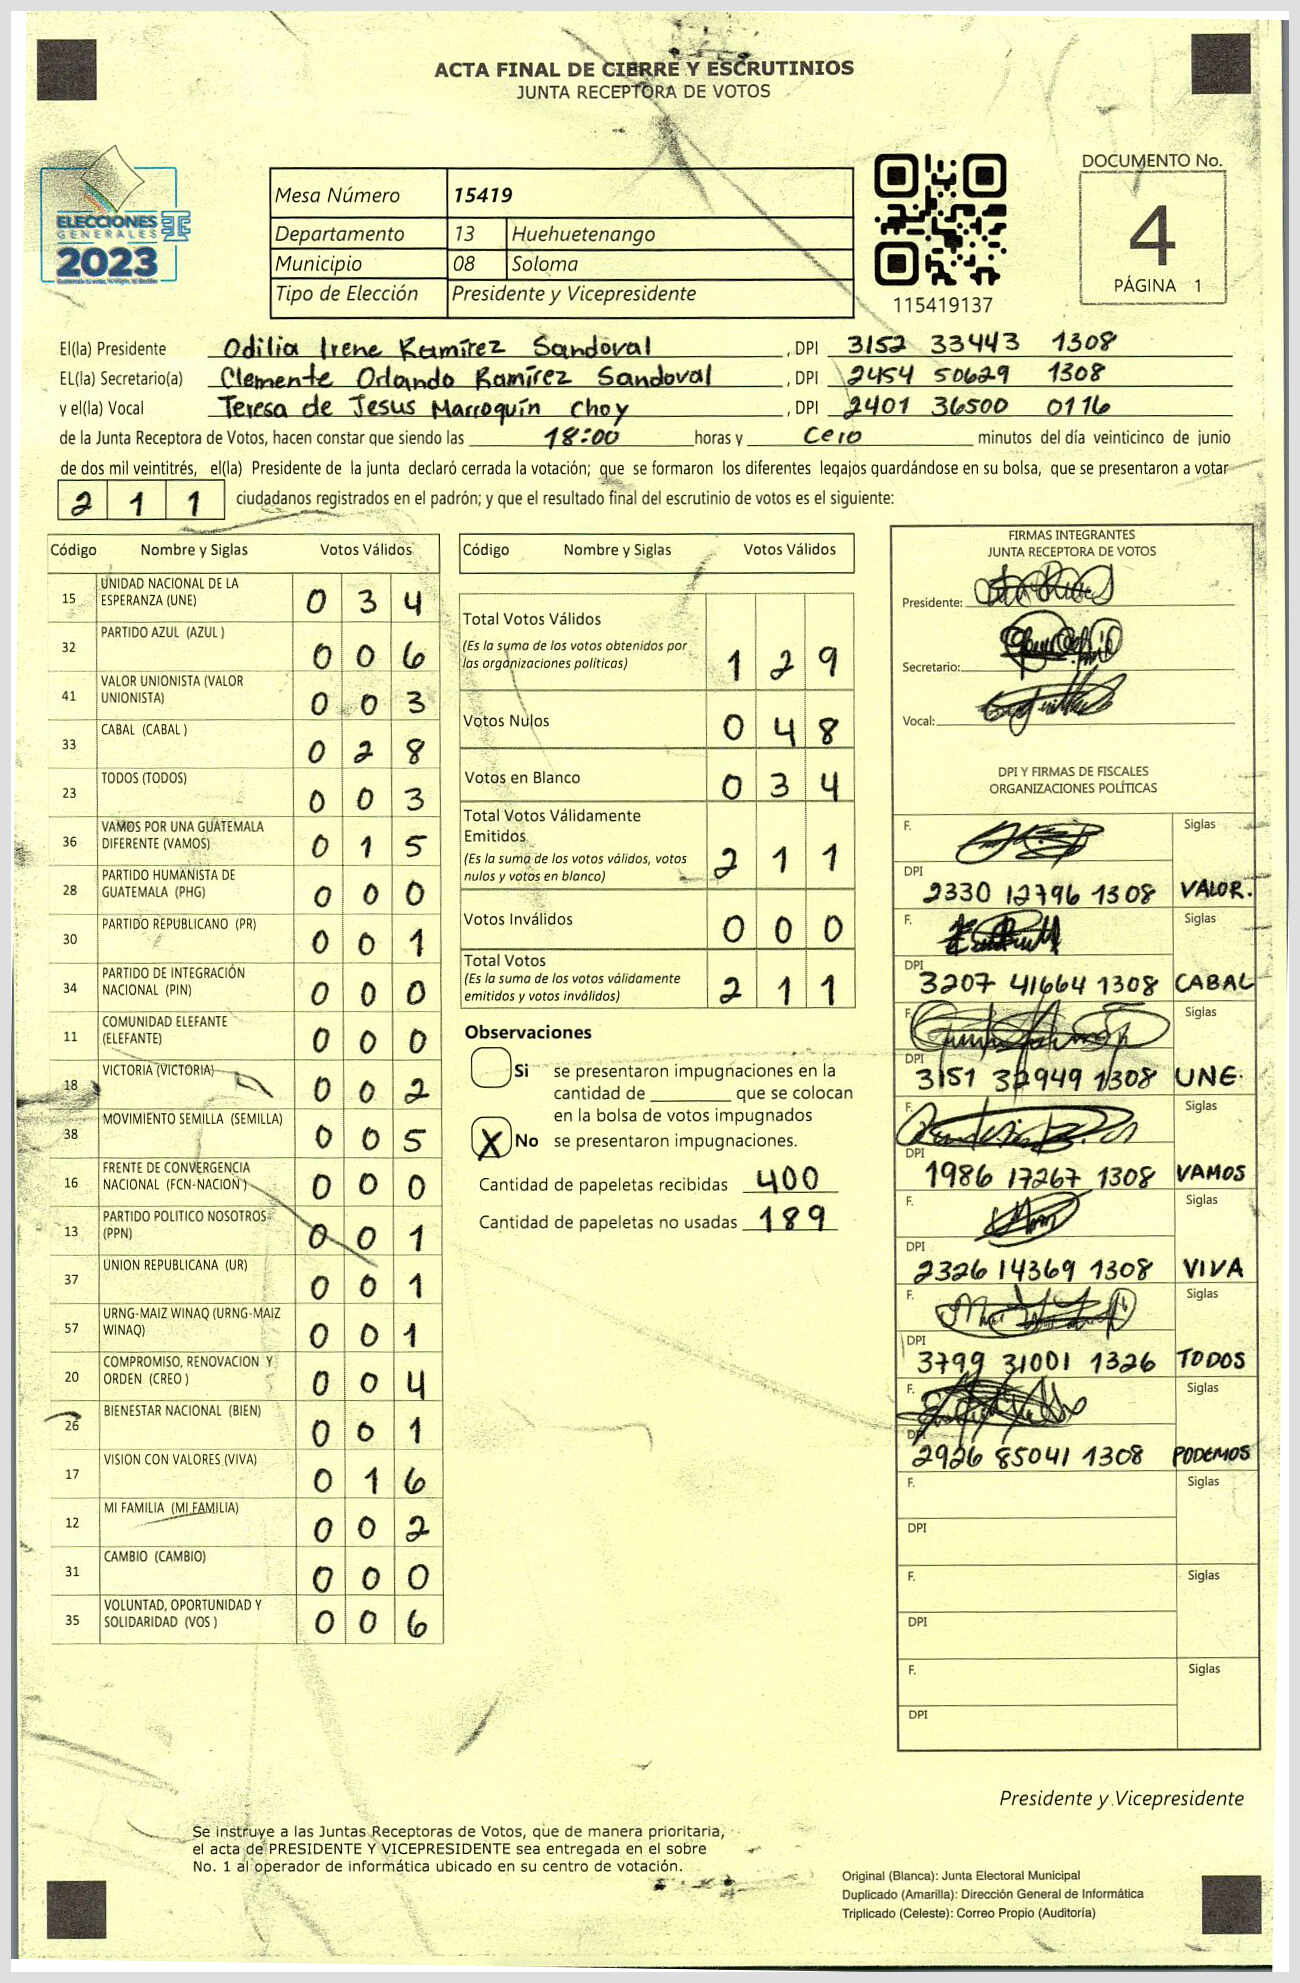 ACTA FINAL DE CIERRE Y ESCRUTINIOS
JUNTA RECEPTORA DE VOTOS
ELECCIONES
GENERALES
2023
TSE
Mesa Número 15419
Departamento 13 Huehuetenango
Municipio 08 Soloma
Tipo de Elección Presidente y Vicepresidente
115419137
DOCUMENTO No.
4
PÁGINA 1
El(la) Presidente Odilia Irene Ramírez Sandoval , DPI 3152 33443 1308
EL(la) Secretario(a) Clemente Orlando Ramírez Sandoval , DPI 2454 50629 1308
y el(la) Vocal Teresa de Jesus Marroquín Choy , DPI 2401 36500 0116
de la Junta Receptora de Votos, hacen constar que siendo las 18:00 horas y Cero minutos del día veinticinco de junio
de dos mil veintitrés, el(la) Presidente de la junta declaró cerrada la votación; que se formaron los diferentes legajos guardándose en su bolsa, que se presentaron a votar
2 1 1 ciudadanos registrados en el padrón; y que el resultado final del escrutinio de votos es el siguiente:
Código Nombre y Siglas Votos Válidos
15 UNIDAD NACIONAL DE LA ESPERANZA (UNE) 0 3 4
32 PARTIDO AZUL (AZUL ) 0 0 6
41 VALOR UNIONISTA (VALOR UNIONISTA) 0 0 3
33 CABAL (CABAL ) 0 2 8
23 TODOS (TODOS) 0 0 3
36 VAMOS POR UNA GUATEMALA DIFERENTE (VAMOS) 0 1 5
28 PARTIDO HUMANISTA DE GUATEMALA (PHG) 0 0 0
30 PARTIDO REPUBLICANO (PR) 0 0 1
34 PARTIDO DE INTEGRACIÓN NACIONAL (PIN) 0 0 0
11 COMUNIDAD ELEFANTE (ELEFANTE) 0 0 0
18 VICTORIA (VICTORIA) 0 0 2
38 MOVIMIENTO SEMILLA (SEMILLA) 0 0 5
16 FRENTE DE CONVERGENCIA NACIONAL (FCN-NACION ) 0 0 0
13 PARTIDO POLITICO NOSOTROS (PPN) 0 0 1
37 UNION REPUBLICANA (UR) 0 0 1
57 URNG-MAIZ WINAQ (URNG-MAIZ WINAQ) 0 0 1
20 COMPROMISO, RENOVACION Y ORDEN (CREO ) 0 0 4
26 BIENESTAR NACIONAL (BIEN) 0 0 1
17 VISION CON VALORES (VIVA) 0 1 6
12 MI FAMILIA (MI FAMILIA) 0 0 2
31 CAMBIO (CAMBIO) 0 0 0
35 VOLUNTAD, OPORTUNIDAD Y SOLIDARIDAD (VOS ) 0 0 6
Código Nombre y Siglas Votos Válidos
Total Votos Válidos
(Es la suma de los votos obtenidos por
las organizaciones políticas) 1 2 9
Votos Nulos 0 4 8
Votos en Blanco 0 3 4
Total Votos Válidamente
Emitidos
(Es la suma de los votos válidos, votos
nulos y votos en blanco) 2 1 1
Votos Inválidos 0 0 0
Total Votos
(Es la suma de los votos válidamente
emitidos y votos inválidos) 2 1 1
Observaciones
Si se presentaron impugnaciones en la
cantidad de ________ que se colocan
en la bolsa de votos impugnados
X No se presentaron impugnaciones.
Cantidad de papeletas recibidas 400
Cantidad de papeletas no usadas 189
FIRMAS INTEGRANTES
JUNTA RECEPTORA DE VOTOS
Presidente:
Secretario:
Vocal:
DPI Y FIRMAS DE FISCALES
ORGANIZACIONES POLÍTICAS
F. Siglas
DPI 2330 12796 1308 VALOR.
F. Siglas
DPI 3207 41664 1308 CABAL
F. Siglas
DPI 3151 32949 1308 UNE.
F. Siglas
DPI 1986 17267 1308 VAMOS
F. Siglas
DPI 2326 14369 1308 VIVA
F. Siglas
DPI 3799 31001 1326 TODOS
F. Siglas
DPI 2926 85041 1308 PODEMOS
F. Siglas
DPI
F. Siglas
DPI
F. Siglas
DPI
Presidente y Vicepresidente
Se instruye a las Juntas Receptoras de Votos, que de manera prioritaria,
el acta de PRESIDENTE Y VICEPRESIDENTE sea entregada en el sobre
No. 1 al operador de informática ubicado en su centro de votación.
Original (Blanca): Junta Electoral Municipal
Duplicado (Amarilla): Dirección General de Informática
Triplicado (Celeste): Correo Propio (Auditoría)